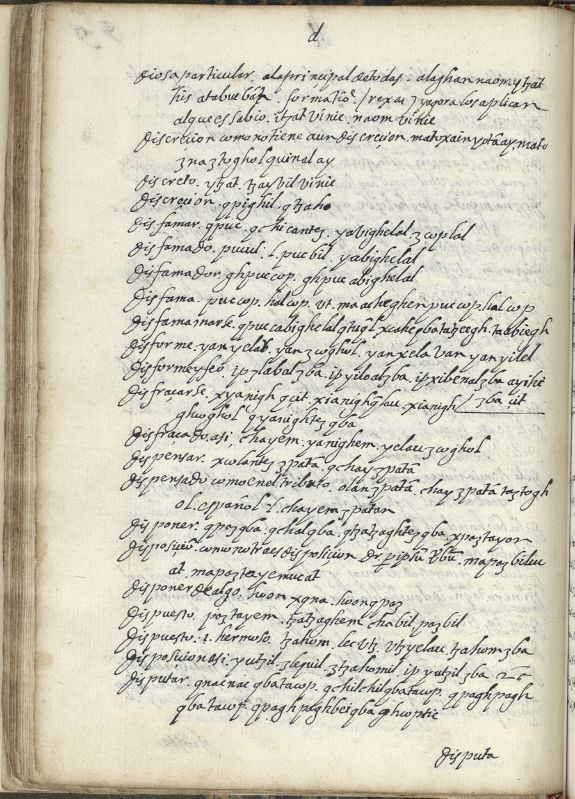 d
diosa particular. ala principal de todas. alaghan naom ytzat
his atabueban. formatio. / rex ac z yagora los aplican
alque es sabio. itzat vinic. naom vinic
discreçion como no tiene aun discreçion. matoxain yotã ay mato
znaztoghol quinal ay
discreto. ytzat. tzayvil vinic
discreçion. qpighil. qtzaho
disfamar. qpuc. qchicantes. yabighelal zcoplal
disfamado. pucul. l. pucbil. yabighelal
disfamador. ghpuccop. ghpuc abighelal
disfama. puccop. halcop. vt. ma acheghen puccop halcop
disfamamarse. qpuc abighelal
disforme. yanyelau. yan zcoghol. yanxela van yanyilel
disforme y feo. ip zlabal zba. ip yiloal zba. ip xibenal zba ayihi
disfracarse. xyanigh qcit. xianigh xianigh / zba cit
ghcoghol qyanightes qba
disfracado. asi. chayem. yanighem. yelau zcoghol
dispensar. xcolantes zpatã. qchay zpatã
dispensado como en el tributo. olan zpatã. chay zpatã taztogh
ol. español l. chayem zpatan
disponer. qpoz qba. qchal qba. qtzatzaghtes qba. xpoztayon
disposiciõ. como no traes disposicion de mapozbiluc
at. mapoztayemucat
disponer de algo. hcon xqna. hcong poz
dispuesto. poztayem. tzatzaghem chabil pozbil
dispuesto. i. hermoso. tzahom. lec vtz. vtzyelau. tzahom zba
disposicion asi. yutzil. zlequil. ztzahomil. ip yutzil zba
disputar. qnacnac qbatacop. qchilchil qbatacop. qpaghpagh
qbatacop. qpaghpaghbei qba. ghcoptic
disputa